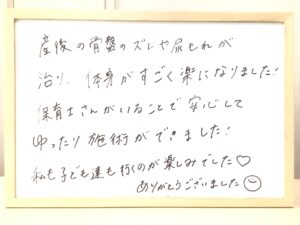 産後の骨盤のズレや尿もれが
治り、体身がすごく楽になりました!
保育士さんがいることで安心して
ゆったり施術ができました!
私も子ども達も行くのが楽しみでした♡
ありがとうございました☺